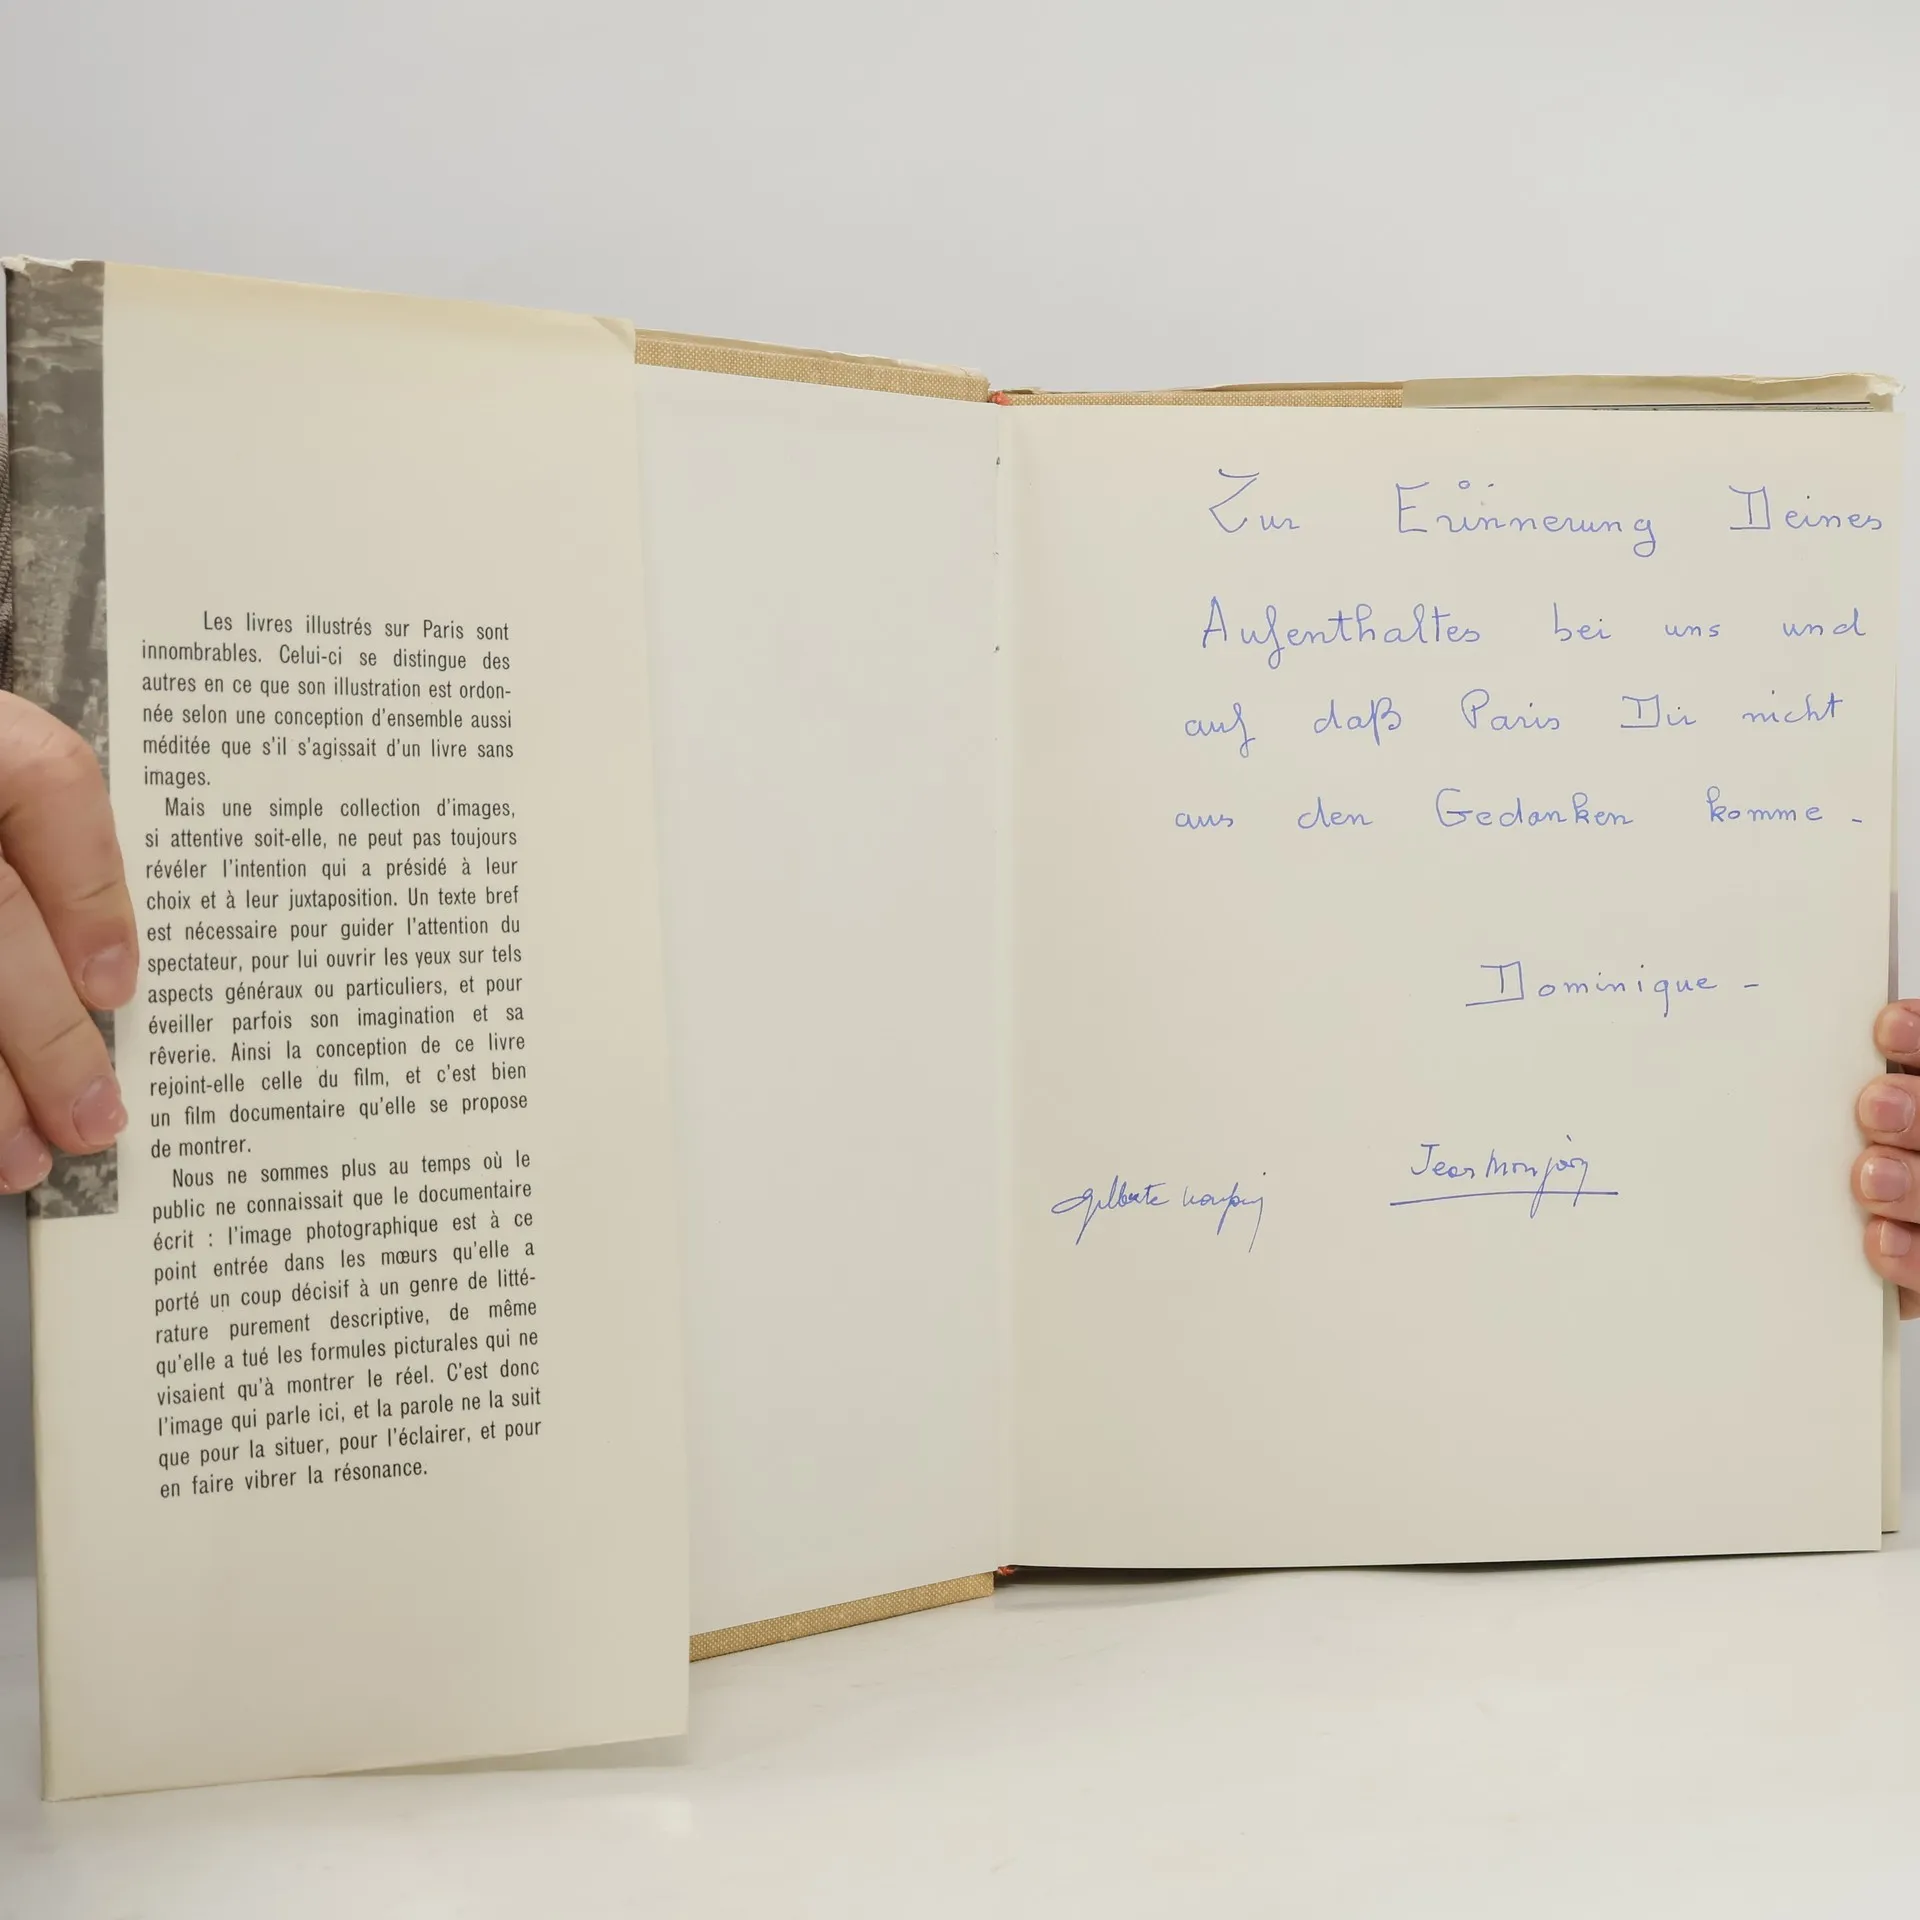 Les livres illustrés sur Paris sont
innombrables. Celui-ci se distingue des
autres en ce que son illustration est ordon-
née selon une conception d'ensemble aussi
méditée que s'il s'agissait d'un livre sans
images.
Mais une simple collection d'images,
si attentive soit-elle, ne peut pas toujours
révéler l'intention qui a présidé à leur
choix et à leur juxtaposition. Un texte bref
est nécessaire pour guider l'attention du
spectateur, pour lui ouvrir les yeux sur tels
aspects généraux ou particuliers, et pour
éveiller parfois son imagination et sa
rêverie. Ainsi la conception de ce livre
rejoint-elle celle du film, et c'est bien
un film documentaire qu'elle se propose
de montrer.
Nous ne sommes plus au temps où le
public ne connaissait que le documentaire
écrit : l'image photographique est à ce
point entrée dans les mœurs qu'elle a
porté un coup décisif à un genre de litté-
rature purement descriptive, de même
qu'elle a tué les formules picturales qui ne
visaient qu'à montrer le réel. C'est donc
l'image qui parle ici, et la parole ne la suit
que pour la situer, pour l'éclairer, et pour
en faire vibrer la résonance.
Zur Erinnerung Deines
Aufenthaltes bei uns und
auf daß Paris Dir nicht
aus den Gedanken komme -
Dominique -
Jean
Gilberte